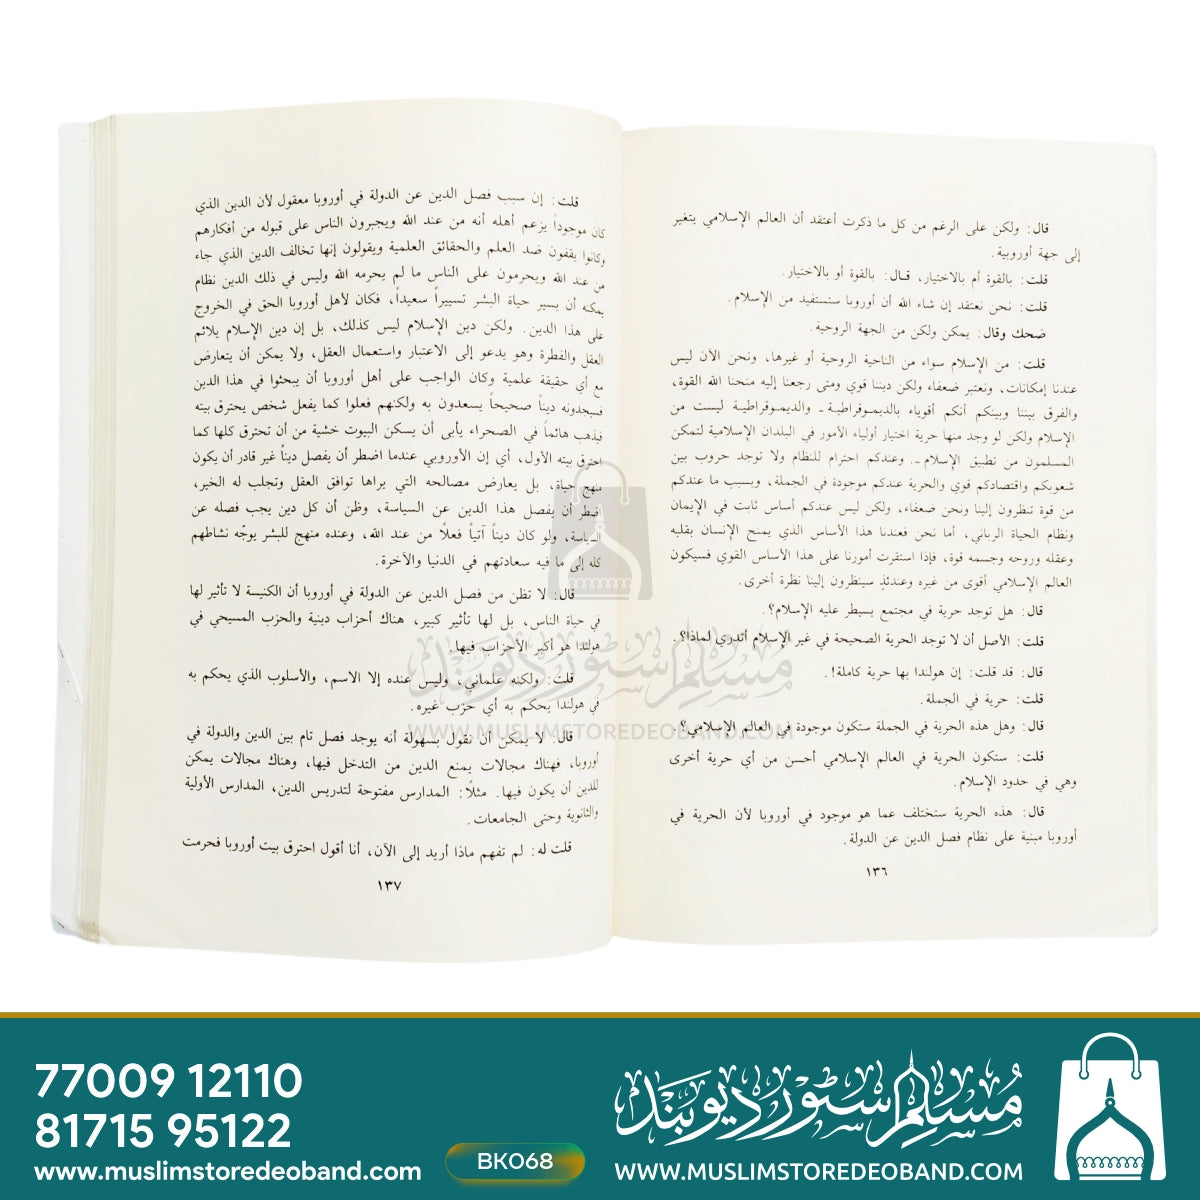 قال: ولكن على الرغم من كل ما ذكرت أعتقد أن العالم الإسلامي يتغير
إلى جهة أوروبية.
قلت: بالقوة أم بالاختيار، قـال: بالقوة أو بالاختيار.
قلت: نحن نعتقد إن شاء الله أن أوروبا ستستفيد من الإسلام.
ضحك وقال: يمكن ولكن من الجهة الروحية.
قلت: من الإسلام سواء من الناحية الروحية أو غيرها، ونحن الآن ليس
عندنا إمكانات، ونعتبر ضعفاء ولكن ديننا قوي ومتى رجعنا إليه منحنا الله القوة،
والفرق بيننا وبينكم أنكم أقوياء بالديمـوقراطيـة ـ والديمـوقراطيـة ليست من
الإسلام ولكن لو وجد منها حرية اختيار أولياء الأمور في البلدان الإسلامية لتمكن
المسلمون من تطبيق الإسلام ـ. وعندكم احترام للنظام ولا توجد حروب بين
شعوبكم واقتصادكم قوي والحرية عندكم موجودة في الجملة، وبسبب ما عندكم
من قوة تنظرون إلينا ونحن ضعفاء، ولكن ليس عندكم أساس ثابت في الإيمان
ونظام الحياة الرباني، أما نحن فعندنا هذا الأساس الذي يمنح الإنسان بقلبه
وعقله وروحه وجسمه قوة، فإذا استقرت أمورنا على هذا الأساس القوي فسيكون
العالم الإسلامي أقوى من غيره وعندئذٍ سينظرون إلينا نظرة أخرى.
قال: هل توجد حرية في مجتمع يسيطر عليه الإسلام؟.
قلت: الأصل أن لا توجد الحرية الصحيحة في غير الإسلام أتدري لماذا؟.
قال: قد قلت: إن هولندا بها حرية كاملة!.
قلت: حرية في الجملة.
قال: وهل هذه الحرية في الجملة ستكون موجودة في العالم الإسلامي؟.
قلت: ستكون الحرية في العالم الإسلامي أحسن من أي حرية أخرى
وهي في حدود الإسلام.
قال: هذه الحرية ستختلف عما هو موجود في أوروبا لأن الحرية في
أوروبا مبنية على نظام فصل الدين عن الدولة.
١٣٦
قلت: إن سبب فصل الدين عن الدولة في أوروبا معقول لأن الدين الذي
كان موجوداً يزعم أهله أنه من عند الله ويجبرون الناس على قبوله من أفكارهم
وكانوا يقفون ضد العلم والحقائق العلمية ويقولون إنها تخالف الدين الذي جاء
من عند الله ويحرمون على الناس ما لم يحرمه الله وليس في ذلك الدين نظام
يمكنه أن يسير حياة البشر تسييراً سعيداً، فكان لأهل أوروبا الحق في الخروج
على هذا الدين. ولكن دين الإسلام ليس كذلك، بل إن دين الإسلام يلائم
العقل والفطرة وهو يدعو إلى الاعتبار واستعمال العقل، ولا يمكن أن يتعارض
مع أي حقيقة علمية وكان الواجب على أهل أوروبا أن يبحثوا في هذا الدين
فسيجدونه ديناً صحيحاً يسعدون به ولكنهم فعلوا كما يفعل شخص يحترق بيته
فيذهب هائماً في الصحراء يأبى أن يسكن البيوت خشية من أن تحترق كلها كما
احترق بيته الأول، أي إن الأوروبي عندما اضطر أن يفصل ديناً غير قادر أن يكون
منهج حياة، بل يعارض مصالحه التي يراها توافق العقل وتجلب له الخير،
اضطر أن يفصل هذا الدين عن السياسة، وظن أن كل دين يجب فصله عن
السياسة، ولو كان ديناً آتياً فعلاً من عند الله، وعنده منهج للبشر يوجّه نشاطهم
كله إلى ما فيه سعادتهم في الدنيا والآخرة.
قال: لا تظن من فصل الدين عن الدولة في أوروبا أن الكنيسة لا تأثير لها
في حياة الناس، بل لها تأثير كبير، هناك أحزاب دينية والحزب المسيحي في
هولندا هو أكبر الأحزاب فيها.
قلت: ولكنه علماني، وليس عنده إلا الاسم، والأسلوب الذي يحكم به
في هولندا يحكم به أي حزب غيره.
قال: لا يمكن أن نقول بسهولة أنه يوجد فصل تام بين الدين والدولة في
أوروبا، فهناك مجالات يمنع الدين من التدخل فيها، وهناك مجالات يمكن
للدين أن يكون فيها. مثلاً: المدارس مفتوحة لتدريس الدين، المدارس الأولية
والثانوية وحتى الجامعات.
قلت له: لم تفهم ماذا أريد إلى الآن، أنا أقول احترق بيت أوروبا فحرمت
١٣٧
مسلم سٹور دیوبند
WWW.MUSLIMSTOREDEOBAND.COM
77009 12110
81715 95122
www.muslimstoredeoband.com
BK068
مسلم سٹور دیوبند
WWW.MUSLIMSTOREDEOBAND.COM